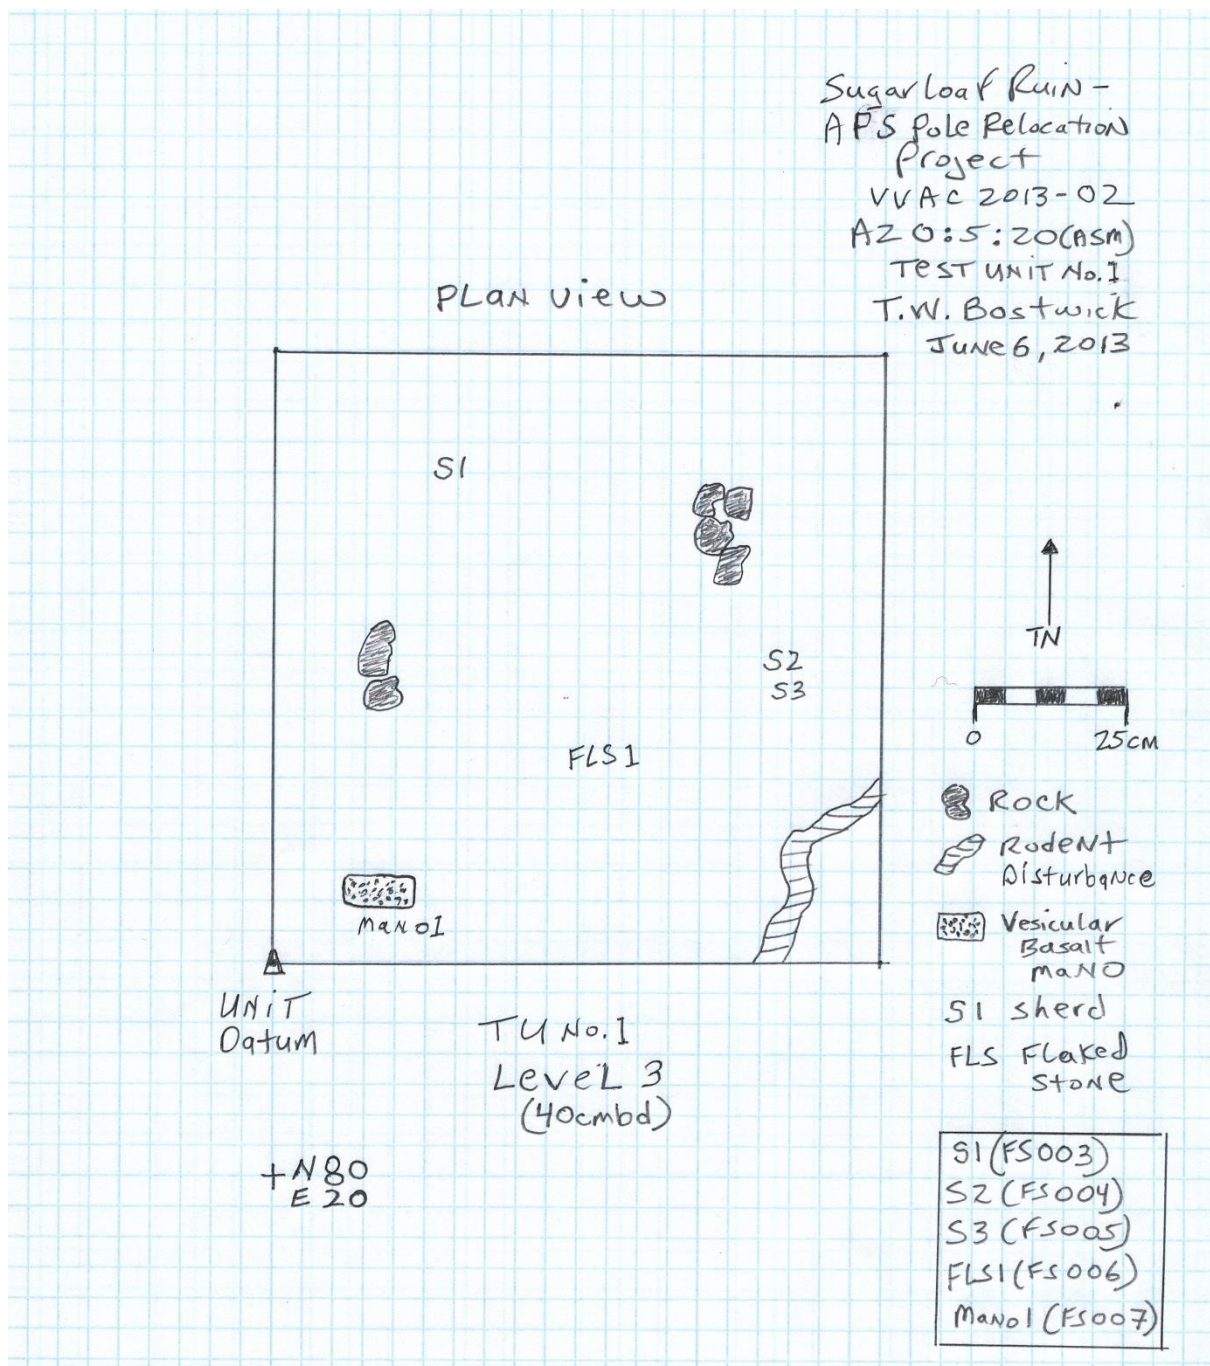 Sugarloaf Ruin -
APS Pole Relocation
Project
VVAC 2013-02
AZ O:5:20(ASM)
TEST UNIT No. 1
T.W. Bostwick
JUNE 6, 2013
PLAN VIEW
S1
S2
S3
FLS1
MANO1
TN
0 25CM
Rock
Rodent
Disturbance
Vesicular
Basalt
MANO
S1 sherd
FLS Flaked
STONE
UNIT
Datum
TU No. 1
LEVEL 3
(40cmbd)
+N80
E20
S1 (FS003)
S2 (FS004)
S3 (FS005)
FLS1 (FS006)
MANO1 (FS007)